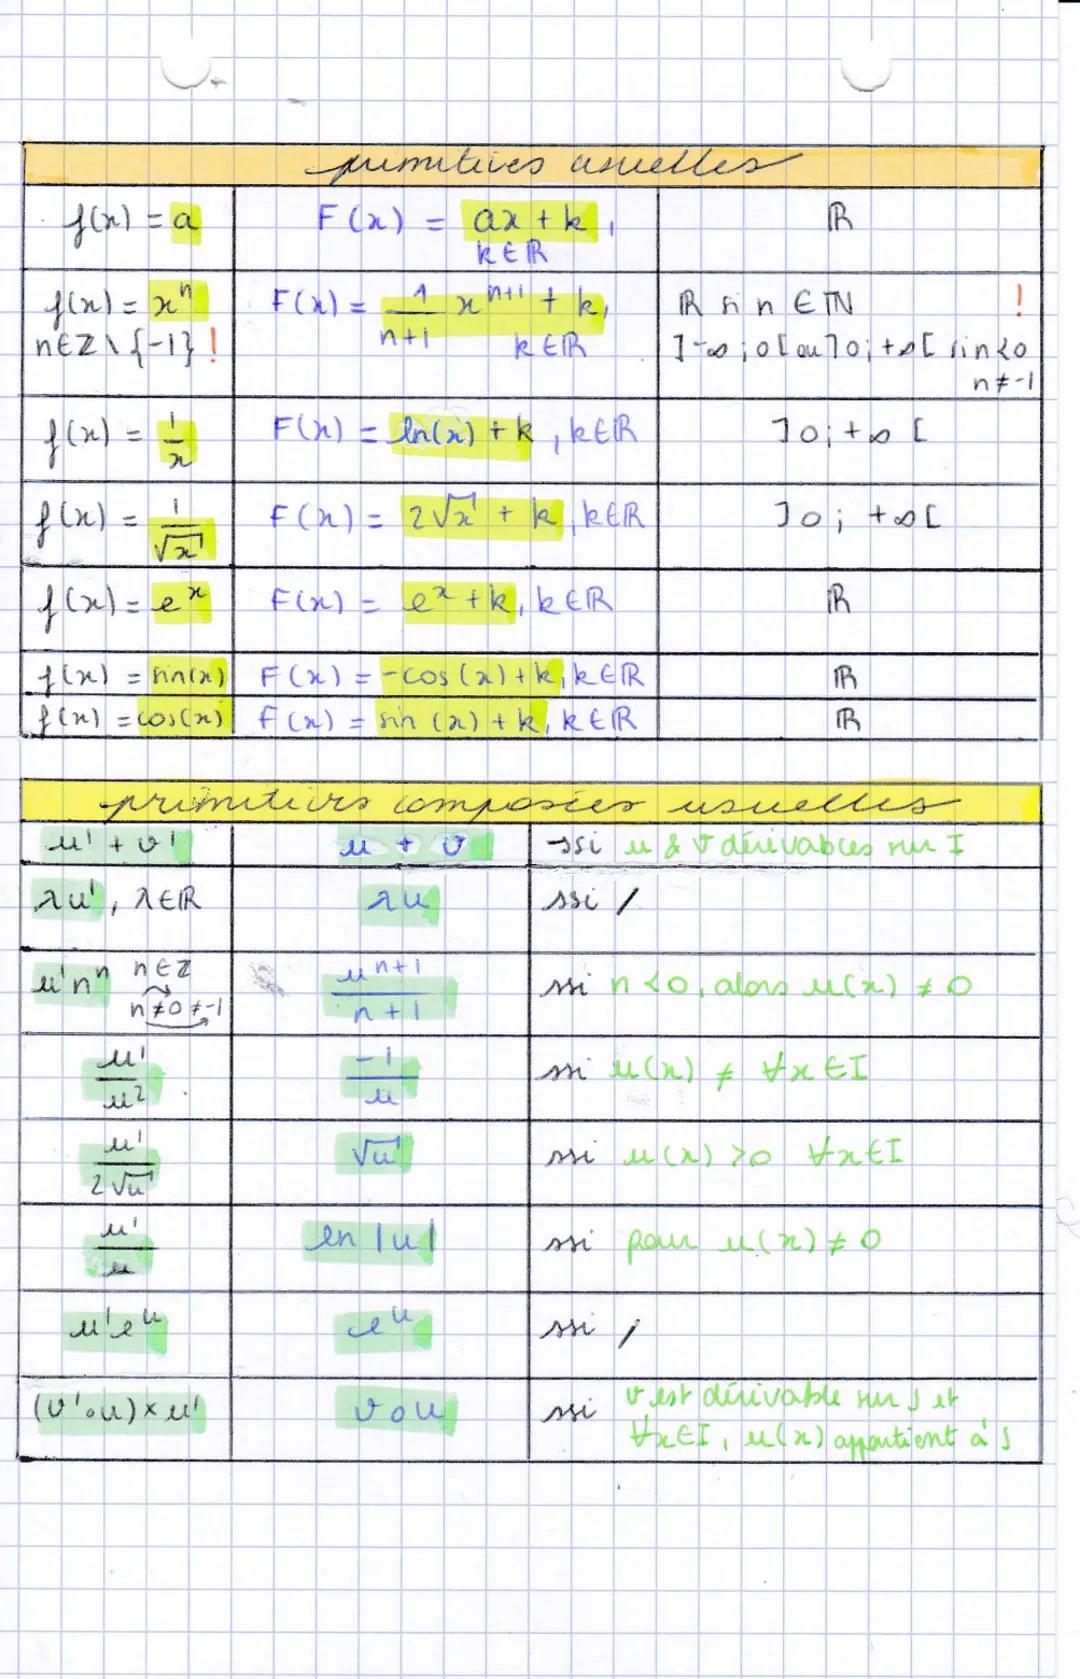 primitives usuelles
f(x) = a F(x) = ax + k, k∈ℝ ℝ
f(x) = xⁿ n∈ℤ\{-1} ! F(x) = 1/(n+1) xⁿ⁺¹ + k, k∈ℝ ℝ si n ∈ ℕ !
]-∞;0[ ou ]0;+∞[ si n<0
n≠-1
f(x) = 1/x F(x) = ln(x) + k, k∈ℝ ]0;+∞[
f(x) = 1/√x F(x) = 2√x + k, k∈ℝ ]0; +∞[
f(x) = eˣ F(x) = eˣ + k, k∈ℝ ℝ
f(x) = sin(x) F(x) = -cos(x) + k, k∈ℝ ℝ
f(x) = cos(x) F(x) = sin(x) + k, k∈ℝ ℝ
primitives composées usuelles
u' + v' u + v ssi u & v dérivables sur I
λu', λ∈ℝ λu ssi /
u'nⁿ n∈ℤ n≠0≠-1 uⁿ⁺¹/(n+1) ssi n<0, alors u(x) ≠ 0
u'/u² -1/u ssi u(x) ≠ ∀x∈I
u'/(2√u) √u ssi u(x) >0 ∀x∈I
u'/u ln |u| ssi pour u(x) ≠ 0
u'eᵘ eᵘ ssi /
(v'∘u)×u' v∘u ssi v est dérivable sur J et
∀x∈I, u(x) appartient à J